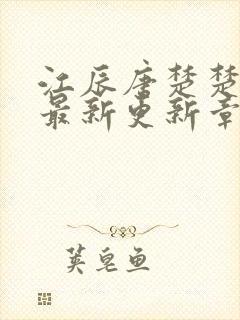 江辰唐楚楚
最新更新章
荚皂鱼